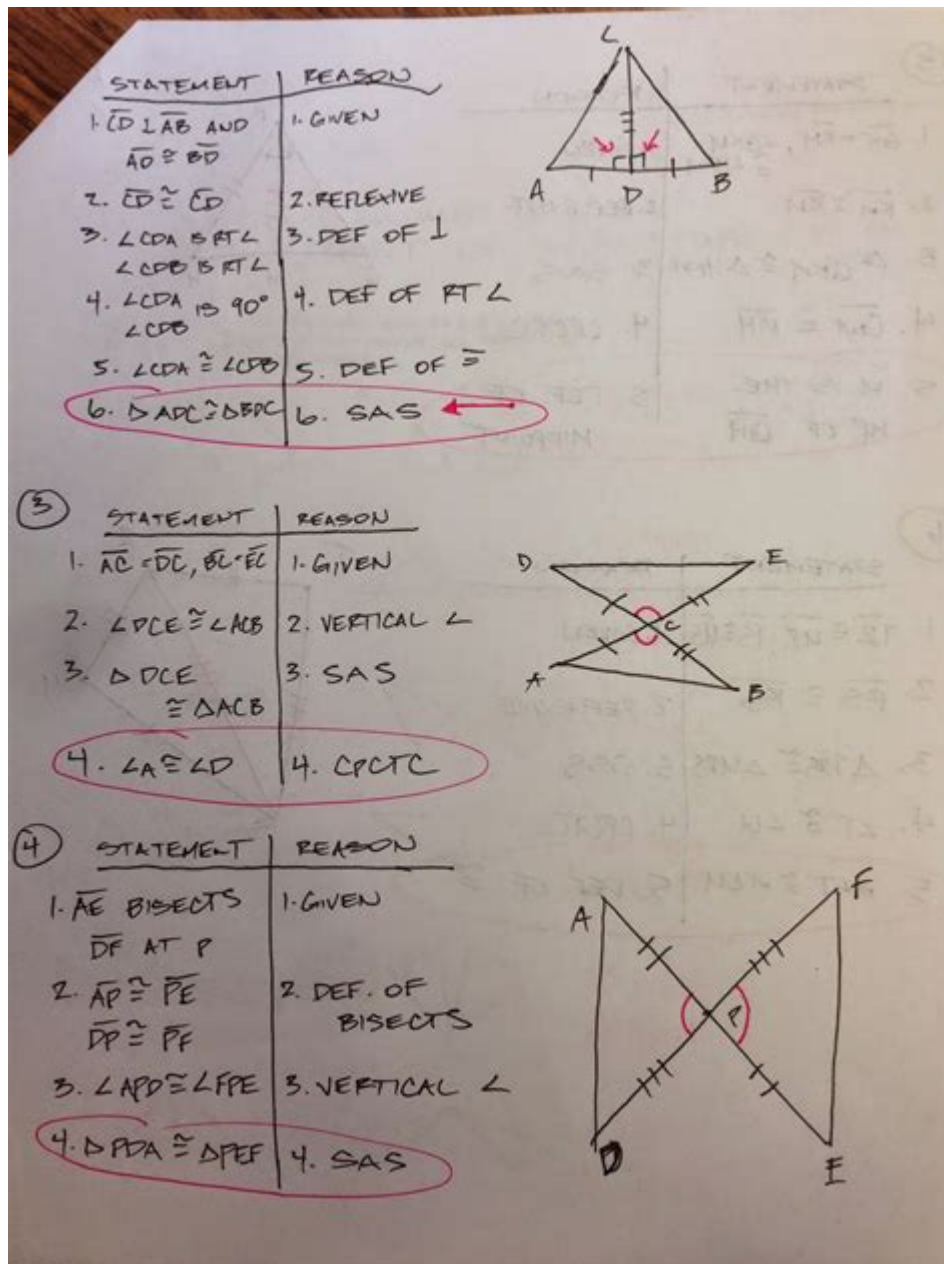 STATEMENT | REASON
1. CD ⊥ AB AND 1. GIVEN
AD ≅ BD
2. CD ≅ CD 2. REFLEXIVE
3. ∠CDA IS RT∠ 3. DEF OF ⊥
∠CDB IS RT∠
4. ∠CDA IS 90° 4. DEF OF RT ∠
∠CDB
5. ∠CDA ≅ ∠CDB 5. DEF OF ≅
6. △ADC ≅ △BDC 6. SAS
C
A D B
3
STATEMENT | REASON
1. AC = DC, BC = EC 1. GIVEN
2. ∠DCE ≅ ∠ACB 2. VERTICAL ∠
3. △DCE 3. SAS
≅ △ACB
4. ∠A ≅ ∠D 4. CPCTC
D E
C
A B
4
STATEMENT | REASON
1. AE BISECTS 1. GIVEN
DF AT P
2. AP ≅ PE 2. DEF. OF
DP ≅ PF BISECTS
3. ∠APD ≅ ∠FPE 3. VERTICAL ∠
4. △PDA ≅ △PEF 4. SAS
A F
P
D E